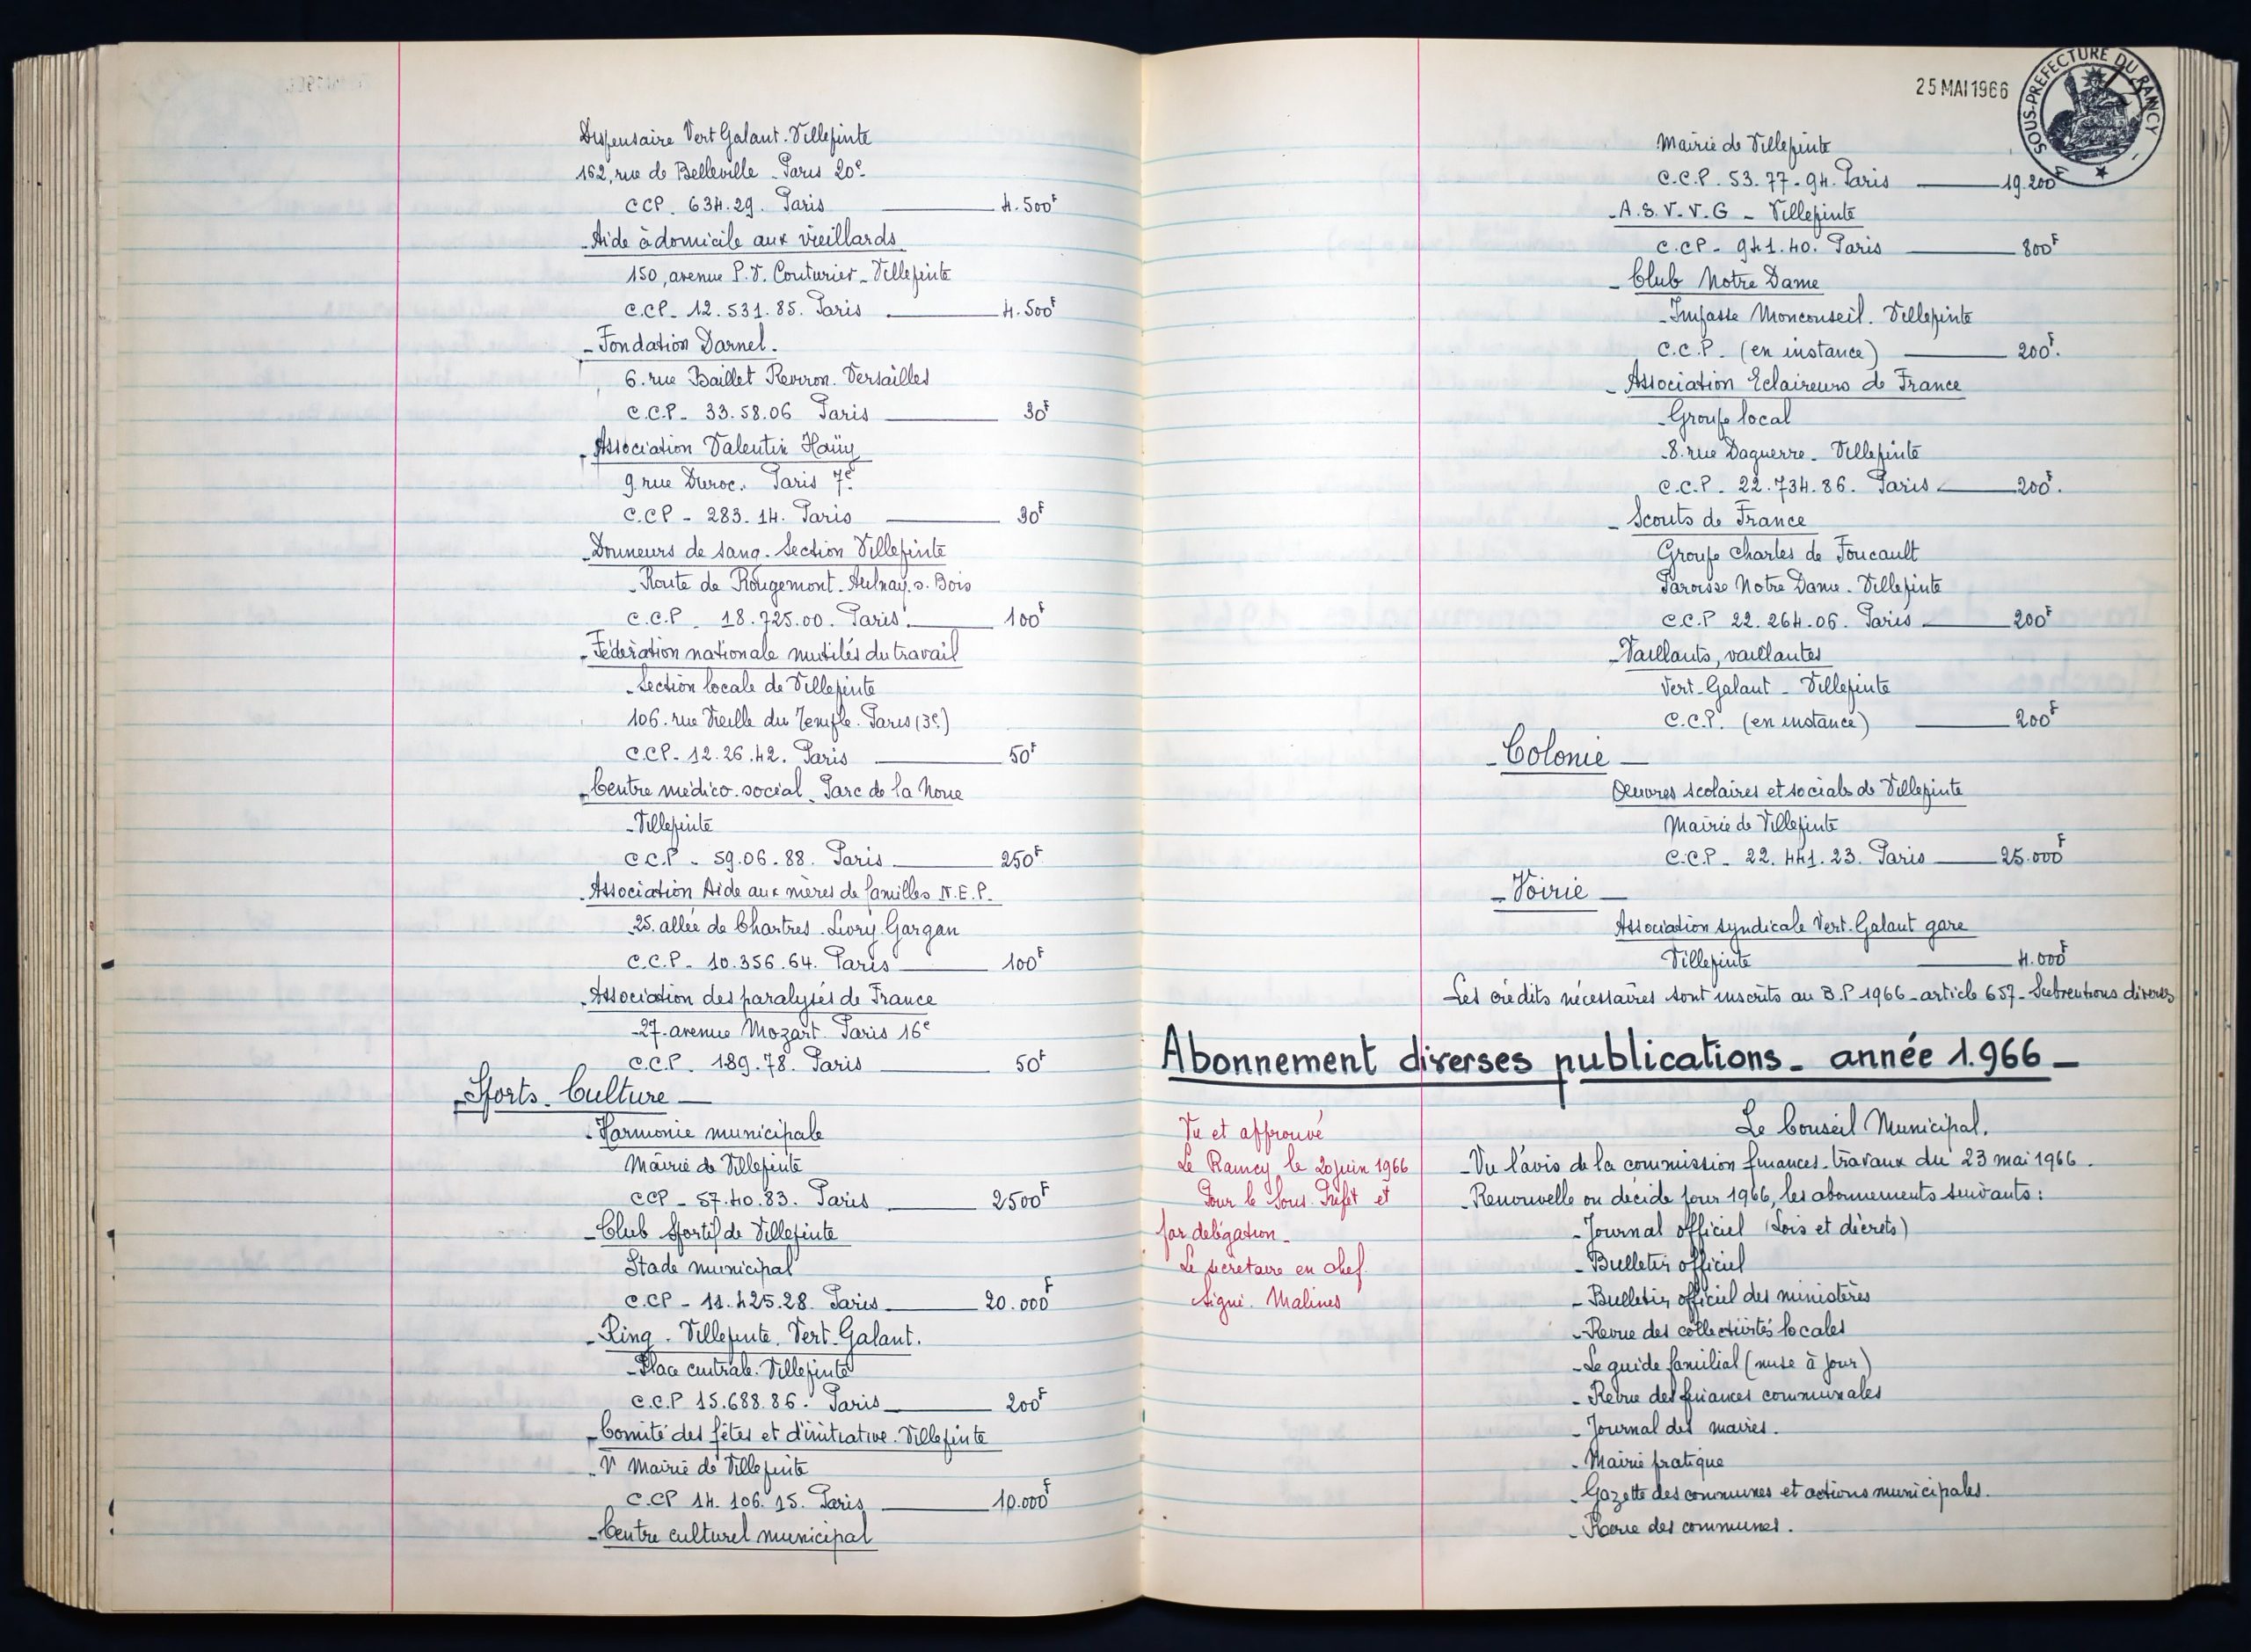 Dispensaire Vert Galant. Villepinte
162, rue de Belleville - Paris 20e
CCP. 634.29. Paris ——— 4.500F
- Aide à domicile aux vieillards
150, avenue P.V. Couturier - Villepinte
C.CP. 12.531.85. Paris ——— 4.500F
- Fondation Darnel.
6. rue Baillet Reviron. Versailles
C.C.P. 33.58.06 Paris ——— 30F
- Association Valentin Haüy
9 rue Duroc. Paris 7e
C.CP - 283.14. Paris ——— 30F
- Donneurs de sang. Section Villepinte
- Route de Rougemont. Aulnay. s. Bois
C.C.P. 18.725.00. Paris ——— 100F
- Fédération nationale mutilés du travail
- Section locale de Villepinte
106. rue Vieille du Temple. Paris (3e)
C.CP. 12.26.42. Paris ——— 50F
- Centre médico-social. Parc de la Noue
- Villepinte
C.C.P. 59.06.88. Paris ——— 250F
- Association Aide aux mères de familles N.E.P.
25. allée de Chartres. Livry. Gargan
C.C.P. 10.356.64. Paris ——— 100F
- Association des paralysés de France
- 27. avenue Mozart. Paris 16e
C.C.P. 189.78. Paris ——— 50F
- Sports. Culture —
- Harmonie municipale
Mairie de Villepinte
CCP - 57.40.83. Paris ——— 2500F
- Club sportif de Villepinte
Stade municipal
C.CP - 11.425.28. Paris ——— 20.000F
- Ring. Villepinte. Vert-Galant.
- Place centrale. Villepinte
C.C.P 15.688.86. Paris ——— 200F
- Comité des fêtes et d'initiative. Villepinte
Mairie de Villepinte
C.CP 14.106.15. Paris ——— 10.000F
- Centre culturel municipal
25 MAI 1966
SOUS-PREFECTURE DU RAINCY
Mairie de Villepinte
C.C.P. 53.77-94. Paris ——— 19.200F
- A.S.V.V.G - Villepinte
C.CP - 941.40. Paris ——— 800F
- Club Notre Dame
- Impasse Monconseil. Villepinte
C.C.P. (en instance) ——— 200F.
- Association Eclaireurs de France
- Groupe local
- 8. rue Daguerre. Villepinte
C.C.P. 22.734.86. Paris ——— 200F.
- Scouts de France
Groupe Charles de Foucault
Paroisse Notre Dame. Villepinte
C.C.P 22.264.06. Paris ——— 200F
- Vaillants, vaillantes
Vert-Galant - Villepinte
C.C.P. (en instance) ——— 200F
- Colonie —
Oeuvres scolaires et sociales de Villepinte
Mairie de Villepinte
C.C.P. 22.441.23. Paris ——— 25.000F
- Voirie —
Association syndicale Vert-Galant gare
Villepinte ——— 4.000F
Les crédits nécessaires sont inscrits au B.P 1966 - article 657 - Subventions diverses
Abonnement diverses publications - année 1.966 -
Vu et approuvé
Le Raincy le 20 juin 1966
Pour le Sous-Préfet et
par délégation -
Le secrétaire en chef
signé. Malines
Le Conseil Municipal.
- Vu l'avis de la commission finances-travaux du 23 mai 1966.
- Renouvelle ou décide pour 1966, les abonnements suivants :
- Journal officiel (Lois et décrets)
- Bulletin officiel
- Bulletin officiel des ministères
- Revue des collectivités locales
- Le guide familial (mise à jour)
- Revue des finances communales
- Journal des maires.
- Mairie pratique
- Gazette des communes et actions municipales.
- Revue des communes.